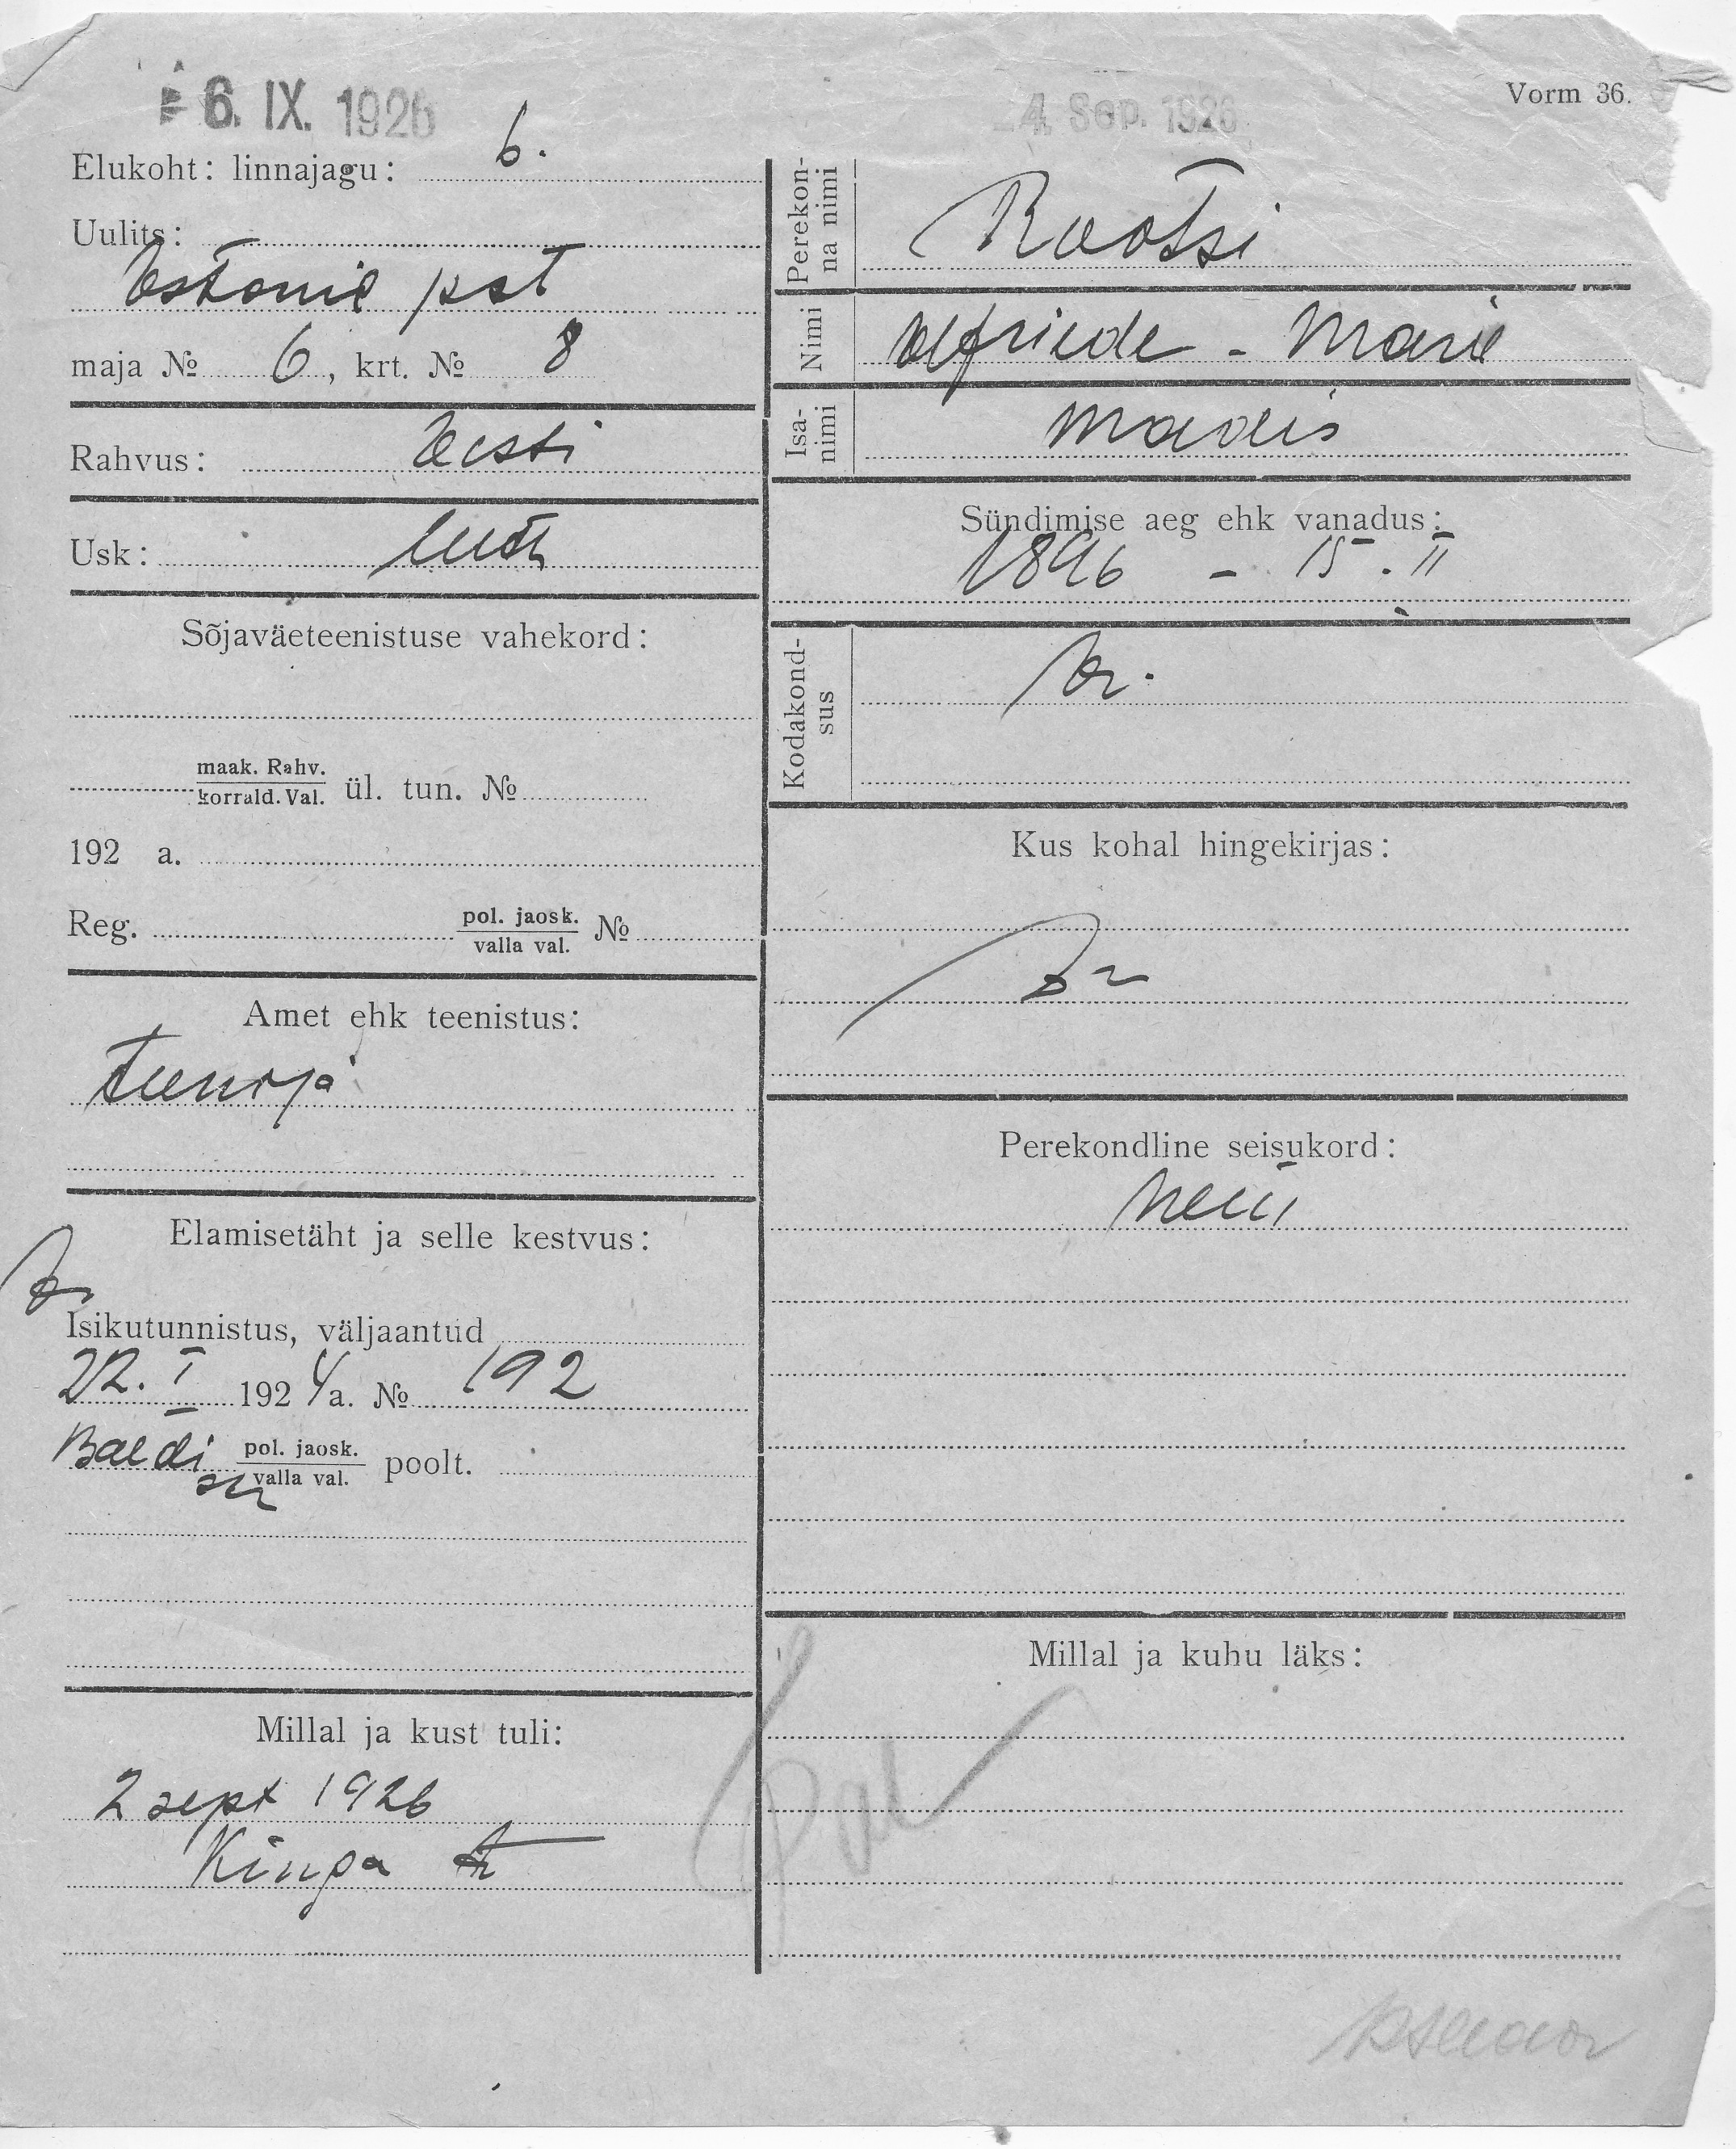 6. IX. 1926
4. Sep. 1926
Vorm 36.
Elukoht: linnajagu: 6.
Uulits:
Estonia pst
maja № 6, krt. № 8
Rahvus: Eesti
Usk: luth
Sõjaväeteenistuse vahekord:
maak. Rahv.
korrald. Val. ül. tun. №
192 a.
Reg. pol. jaosk.
valla val. №
Amet ehk teenistus:
teenija
Elamisetäht ja selle kestvus:
Isikutunnistus, väljaantud
22. I 1924 a. № 192
Baldi pol. jaosk.
valla val. poolt.
Millal ja kust tuli:
2 sept 1926
Kinga
Perekon-
na nimi Rootsi
Nimi Elfriede - Marie
Isa-
nimi Madis
Sündimise aeg ehk vanadus:
1896 - 15. II
Kodakond-
sus
Kus kohal hingekirjas:
Perekondline seisukord:
neiu
Millal ja kuhu läks: